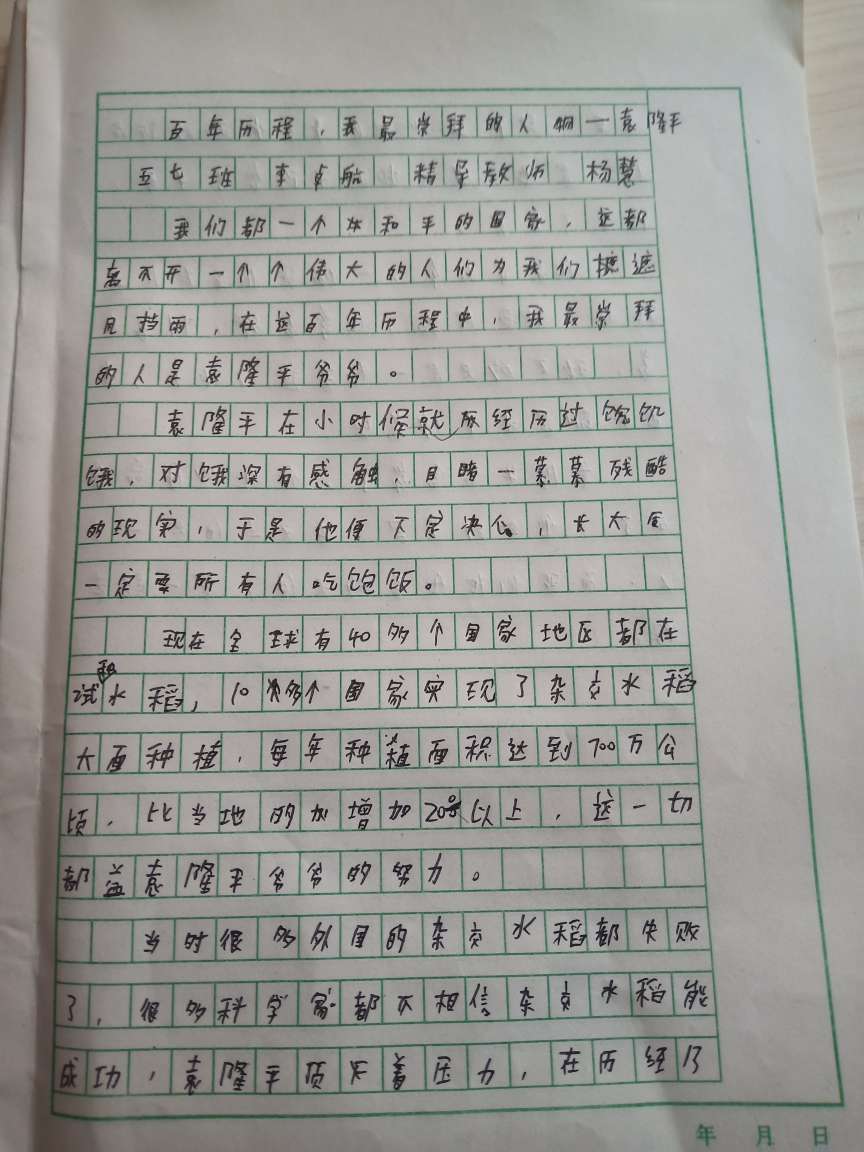 百年历程，我最崇拜的人物一袁隆平
五七班 李卓航 精导教师 杨慧
我们都一个本和平的国家，这都
离不开一个个伟大的人们为我们摭遮
风挡雨，在这百年历程中，我最崇拜
的人是袁隆平爷爷。
袁隆平在小时候就经历过饱饥
饿，对饿深有感触，目睹一幕幕残酷
的现实，于是他便下定决心，长大后
一定要所有人吃饱饭。
现在全球有40多个国家地区都在
试种水稻，10多个国家实现了杂交水稻
大面种植，每年种植面积达到700万公
顷，比当地的加增加20%以上，这一切
都益袁隆平爷爷的努力。
当时很多外国的杂交水稻都失败
了，很多科学家都不相信杂交水稻能
成功，袁隆平顶着压力，在历经了
年 月 日